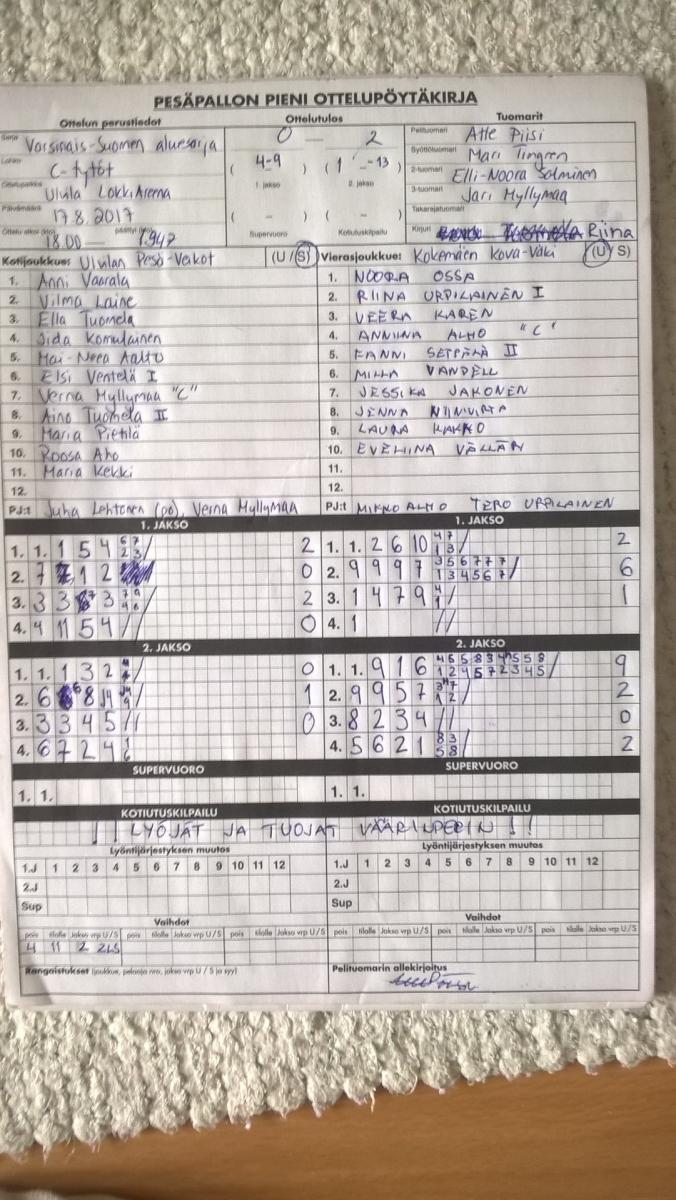 PESÄPALLON PIENI OTTELUPÖYTÄKIRJA
Ottelun perustiedot Ottelutulos Tuomarit
Sarja Varsinais-Suomen aluesarja 0 — 2 Pelituomari Atte Piisi
Lohko C-tytöt ( 4-9 ) ( 1 - 13 ) Syöttötuomari Mari Tingren
Ottelupaikka Ulvila LokkiAreena 1. jakso 2. jakso 2-tuomari Elli-Noora Salminen
Päivämäärä 17.8.2017 ( - ) ( - ) 3-tuomari Jari Myllymaa
Takarajatuomari
Ottelu alkoi (klo) 18.00 — päättyi (klo) 1947 Supervuoro Kotiutuskilpailu Kirjuri Riina
Kotijoukkue: Ulvilan Pesä-Veikot (U / S) Vierasjoukkue: Kokemäen Kova-Väki (U / S)
1. Anni Vaarala 1. NOORA OSSA
2. Vilma Laine 2. RIINA URPILAINEN I
3. Ella Tuomela 3. VEERA KAREN
4. Iida Komulainen 4. ANNIINA ALHO "C"
5. Mai-Neea Aalto 5. FANNI SEPPÄLÄ II
6. Elsi Ventelä I 6. MILLA VANDELL
7. Verna Myllymaa "C" 7. JESSIKA JAKONEN
8. Aino Tuomela II 8. JENNA NIINIVIRTA
9. Maria Pietilä 9. LAURA KAKKO
10. Roosa Aho 10. EVELIINA
11. Maria Kekki 11.
12. 12.
PJ:t Juha Lehtonen (pö), Verna Myllymaa PJ:t MIKKO ALHO TERO URPILAINEN
1. JAKSO 1. JAKSO
1. 1. 1 5 4 2 1. 1. 2 6 10 2
2. 7 1 2 0 2. 9 9 9 7 6
3. 3 3 3 2 3. 1 4 7 9 1
4. 4 11 5 4 // 0 4. 1 //
2. JAKSO 2. JAKSO
1. 1. 1 3 2 0 1. 1. 9 1 6 9
2. 6 8 1 2. 9 9 5 7 2
3. 3 3 4 5 // 0 3. 8 2 3 4 // 0
4. 6 7 2 4 4. 5 6 2 1 2
SUPERVUORO SUPERVUORO
1. 1. 1. 1.
KOTIUTUSKILPAILU KOTIUTUSKILPAILU
!! LYÖJÄT JA TUOJAT VÄÄRINPÄIN !!
Lyöntijärjestyksen muutos Lyöntijärjestyksen muutos
1.J 1 2 3 4 5 6 7 8 9 10 11 12 1.J 1 2 3 4 5 6 7 8 9 10 11 12
2.J 2.J
Sup Sup
Vaihdot Vaihdot
pois tilalle Jakso vrp U/S pois tilalle Jakso vrp U/S pois tilalle Jakso vrp U/S pois tilalle Jakso vrp U/S pois tilalle Jakso vrp U/S pois tilalle Jakso vrp U/S
4 11 2
Rangaistukset (joukkue, pelaaja nro, jakso vrp U / S ja syy) Pelituomarin allekirjoitus